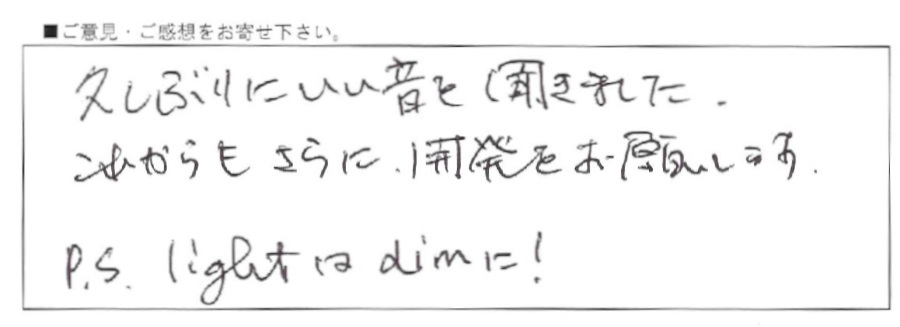 ■ご意見・ご感想をお寄せ下さい。
久しぶりにいい音を聞きました.
これからもさらに、開発をお願いします.
P.S. lightはdimに!